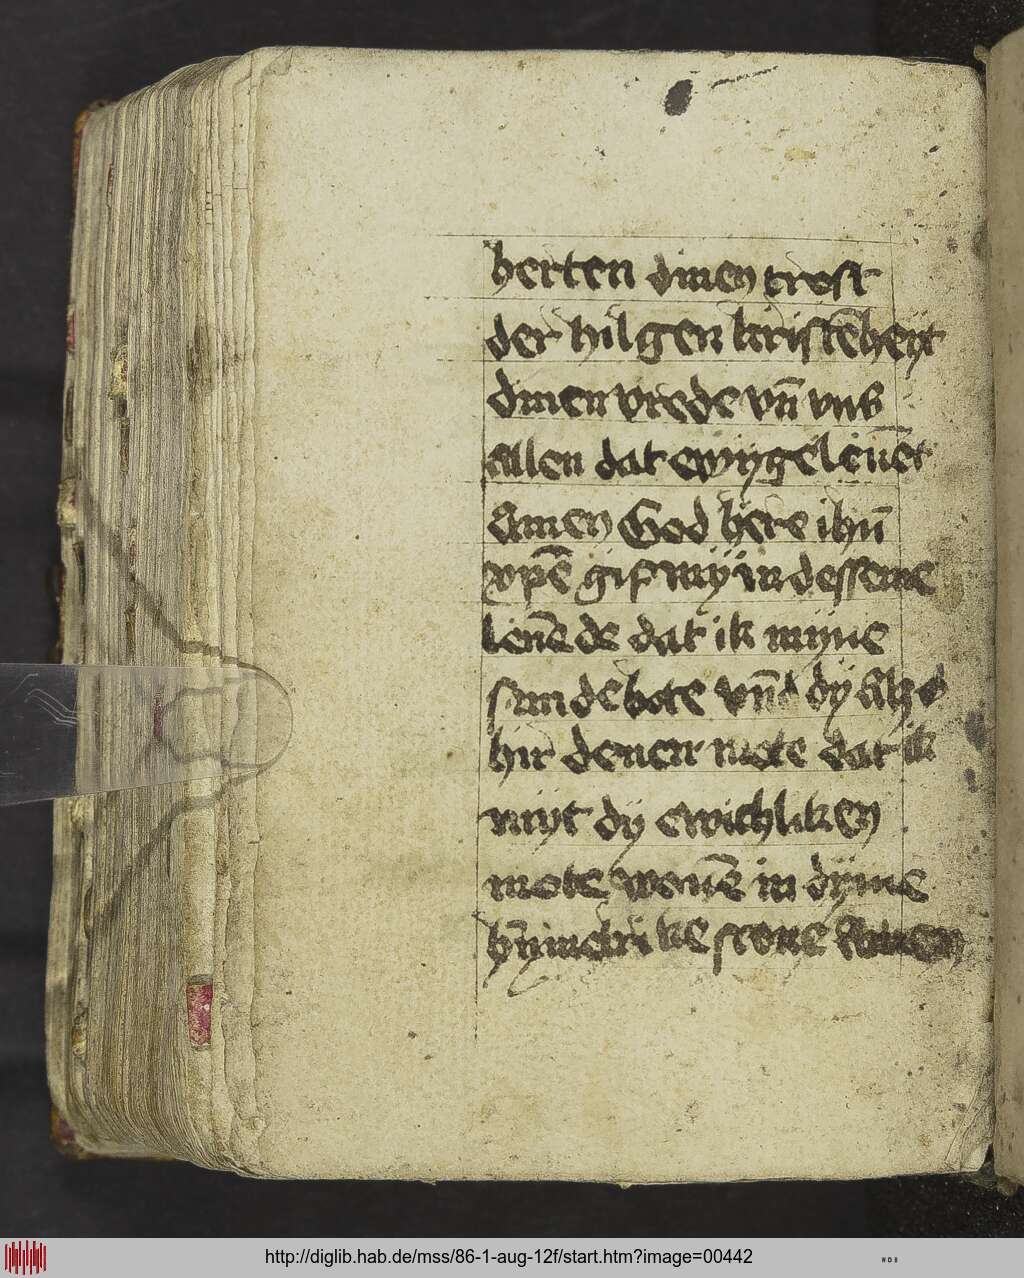 herten dinen trost
der hilgen kristēheyt
dinen vrede vn̄ vns
allen dat ewyge leuēt
Amen God here ihū
xpē gif my in desseme
leuēde dat ik myne
sunde bote vn̄d dy alzo
hir denen mote dat ik
myt dy ewichliken
mote wonē in dyme
hȳmelri ke scone Amen
http://diglib.hab.de/mss/86-1-aug-12f/start.htm?image=00442